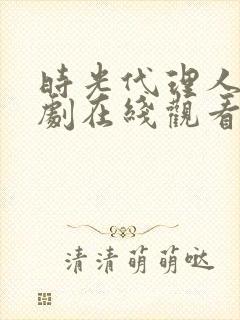 時光代理人
劇在綫觀看
清清萌萌噠